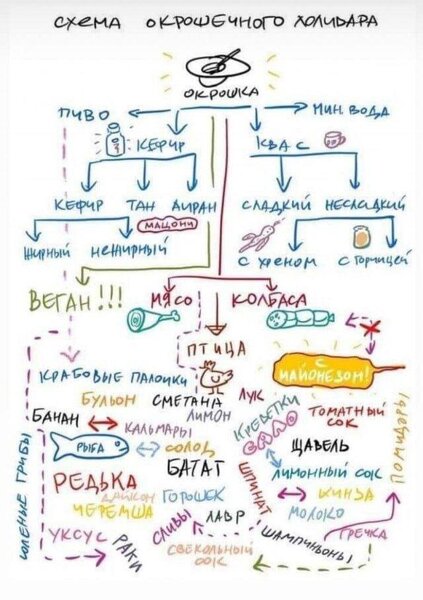 схема окрошечного холивара
окрошка
пиво
мин. вода
кефир
квас
кефир
тан
айран
сладкий
несладкий
мацони
жирный
нежирный
с хреном
с горчицей
веган!!!
мясо
колбаса
птица
с майонезом!
крабовые палочки
бульон
сметана
лук
банан
лимон
креветки
томатный сок
кальмары
сало
помидоры
рыба
солод
щавель
батат
лимонный сок
редька
шпинат
дайкон
горошек
кинза
черемша
молоко
соленые грибы
уксус
раки
сливы
лавр
шампиньоны
гречка
свекольный сок